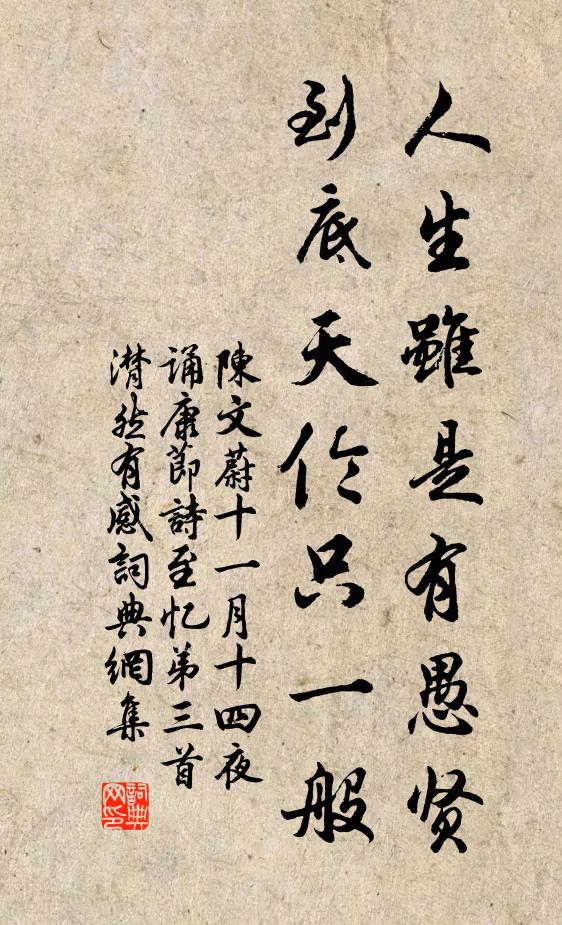 人生雖是有愚贤
到底天伦只一般
陳文蔚十一月十四夜
诵康節詩至忆弟三首
潸然有感詞典網集
詞典网印